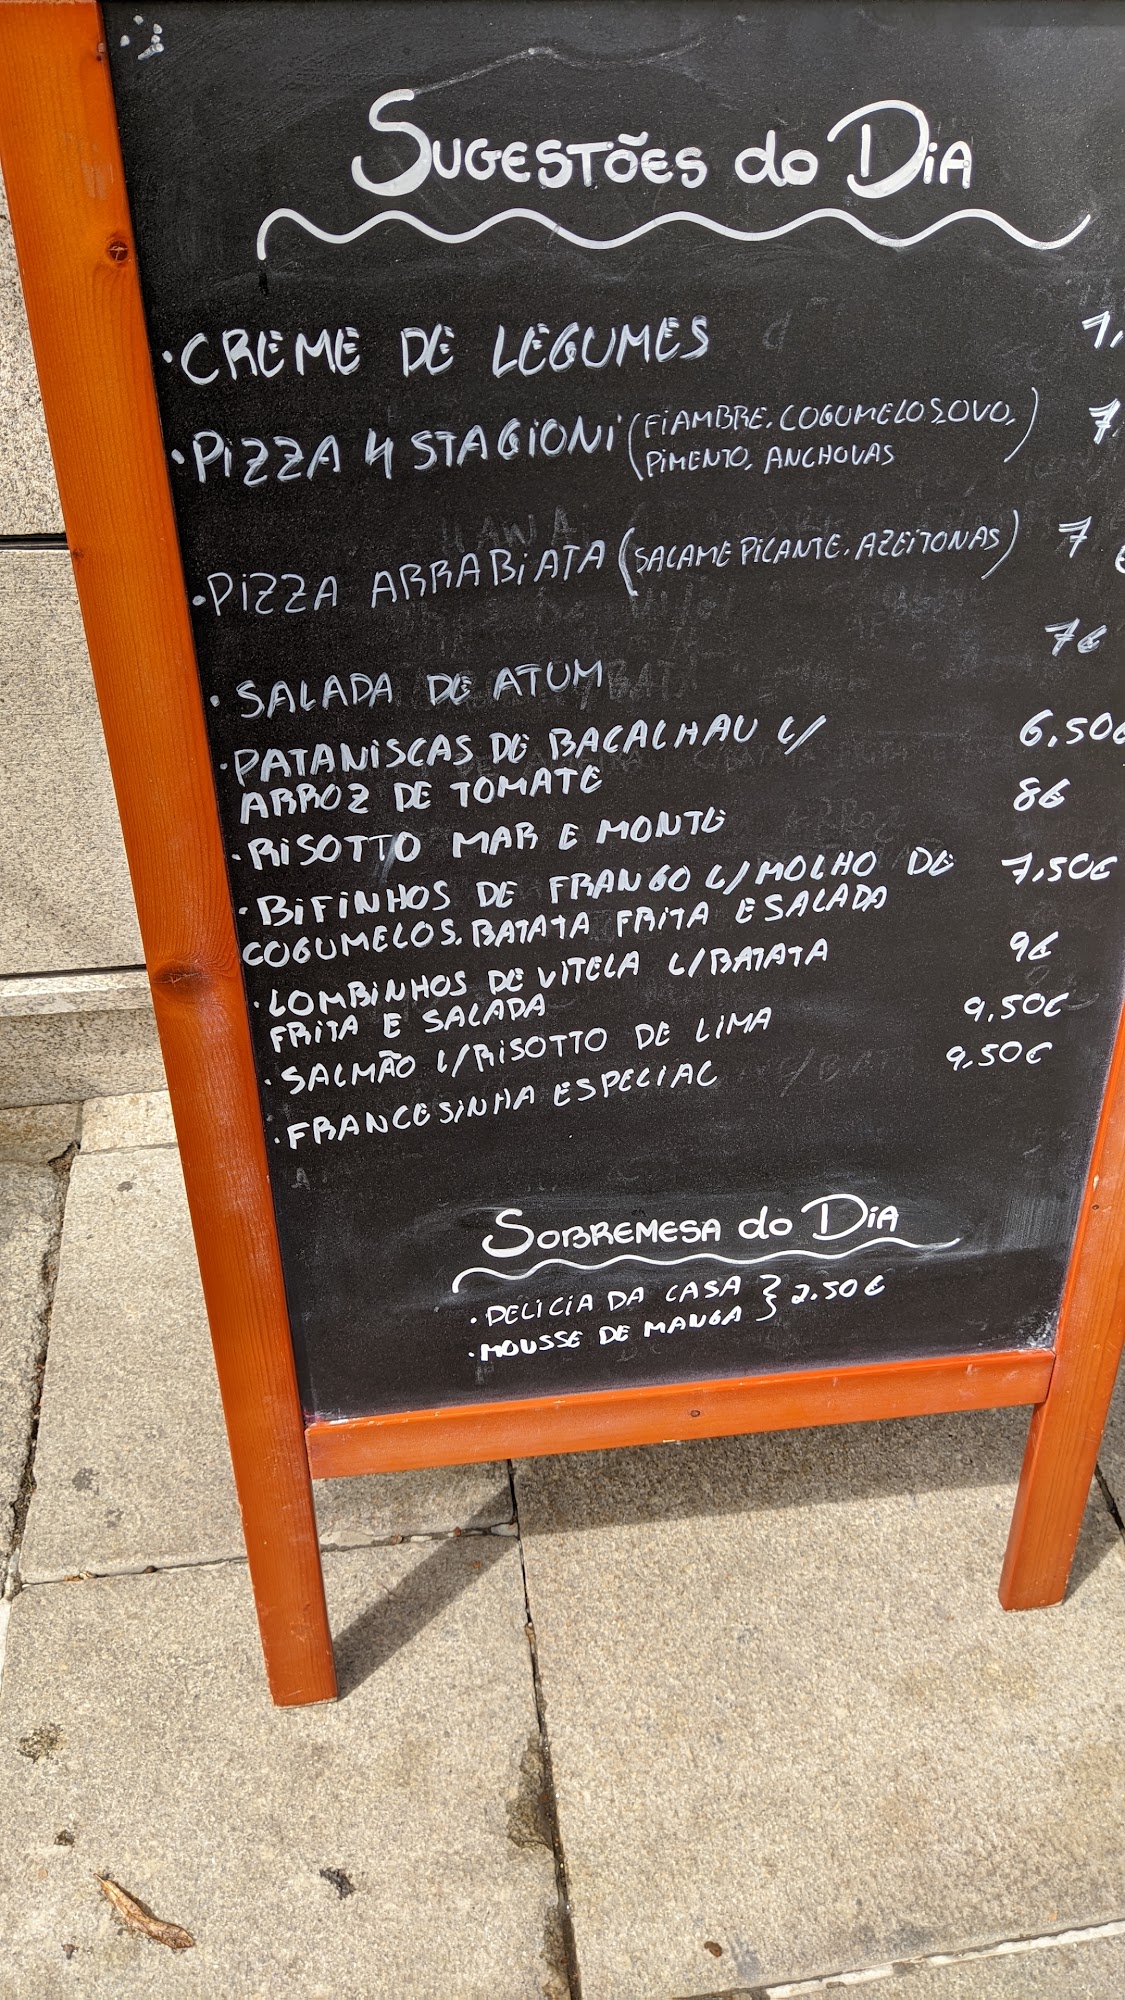 SUGESTÕES do DiA
·CREME DE LEGUMES 1,
·PiZZA 4 STAGIONI (FiAMBRE, COGUMELOS, OVO, 7,
PiMENTO, ANCHOVAS)
·PiZZA ARRABiATA (SALAME PICANTE, AZEITONAS) 7
·SALADA DE ATUM 7€
·PATANiSCAS DE BACALHAU C/ 6,50€
ARROZ DE TOMATE
·RiSOTTO MAR E MONTE 8€
·BiFiNHOS DE FRANGO C/MOLHO DE 7,50€
COGUMELOS, BATATA FRITA E SALADA
·LOMBiNHOS DE ViTELA C/BATATA 9€
FRITA E SALADA
·SALMÃO C/RISOTTO DE LIMA 9,50€
·FRANCESINHA ESPECIAL 9,50€
SOBREMESA do DiA
·DELICIA DA CASA } 2.50€
·MOUSSE DE MANGA